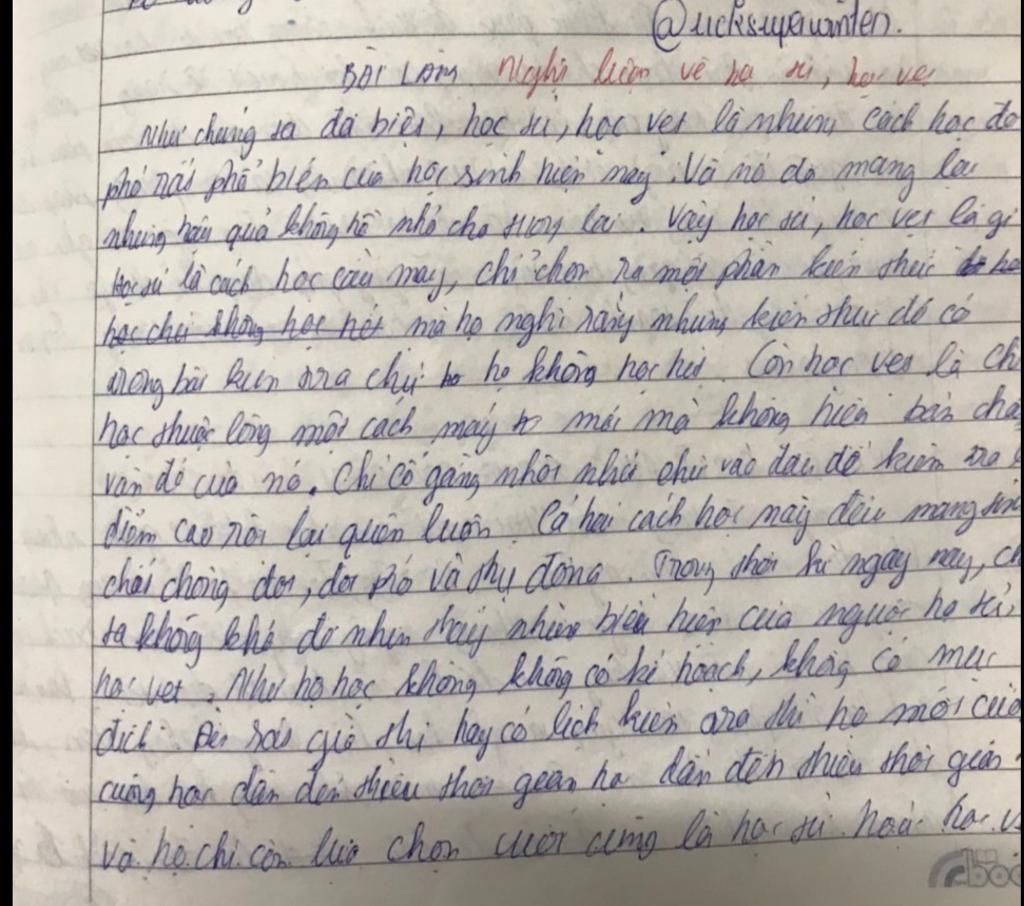 BÀI LÀM Nghị luận về học tủ, học vẹt
Như chúng ta đã biết, học tủ, học vẹt là những cách học đối
phó rất phổ biến của học sinh hiện nay. Và nó đã mang lại
những hậu quả không hề nhỏ cho tương lai. Vậy học tủ, học vẹt là gì
Học tủ là cách học cầu may, chỉ chọn ra một phần kiến thức
học chứ không học hết mà họ nghĩ rằng những kiến thức đó có
trong bài kiểm tra chứ họ không học hết. Còn học vẹt là
học thuộc lòng một cách máy móc mà không hiểu bản chất
vấn đề của nó. Chỉ cố gắng nhồi nhét chữ vào đầu để kiểm tra
điểm cao rồi lại quên luôn. Cả hai cách học này đều mang tính
chất chống đối, đối phó và thụ động. Trong thời kì ngày nay,
ta không khó để nhìn thấy những biểu hiện của người học tủ,
học vẹt. Như họ học không không có kế hoạch, không có mục
đích. Đến sát giờ thi hay có lịch kiểm tra thì họ mới cuống
cuồng học dẫn đến thiếu thời gian họ dẫn đến thiếu thời gian
và họ chỉ còn lựa chọn cuối cùng là học tủ hoặc học